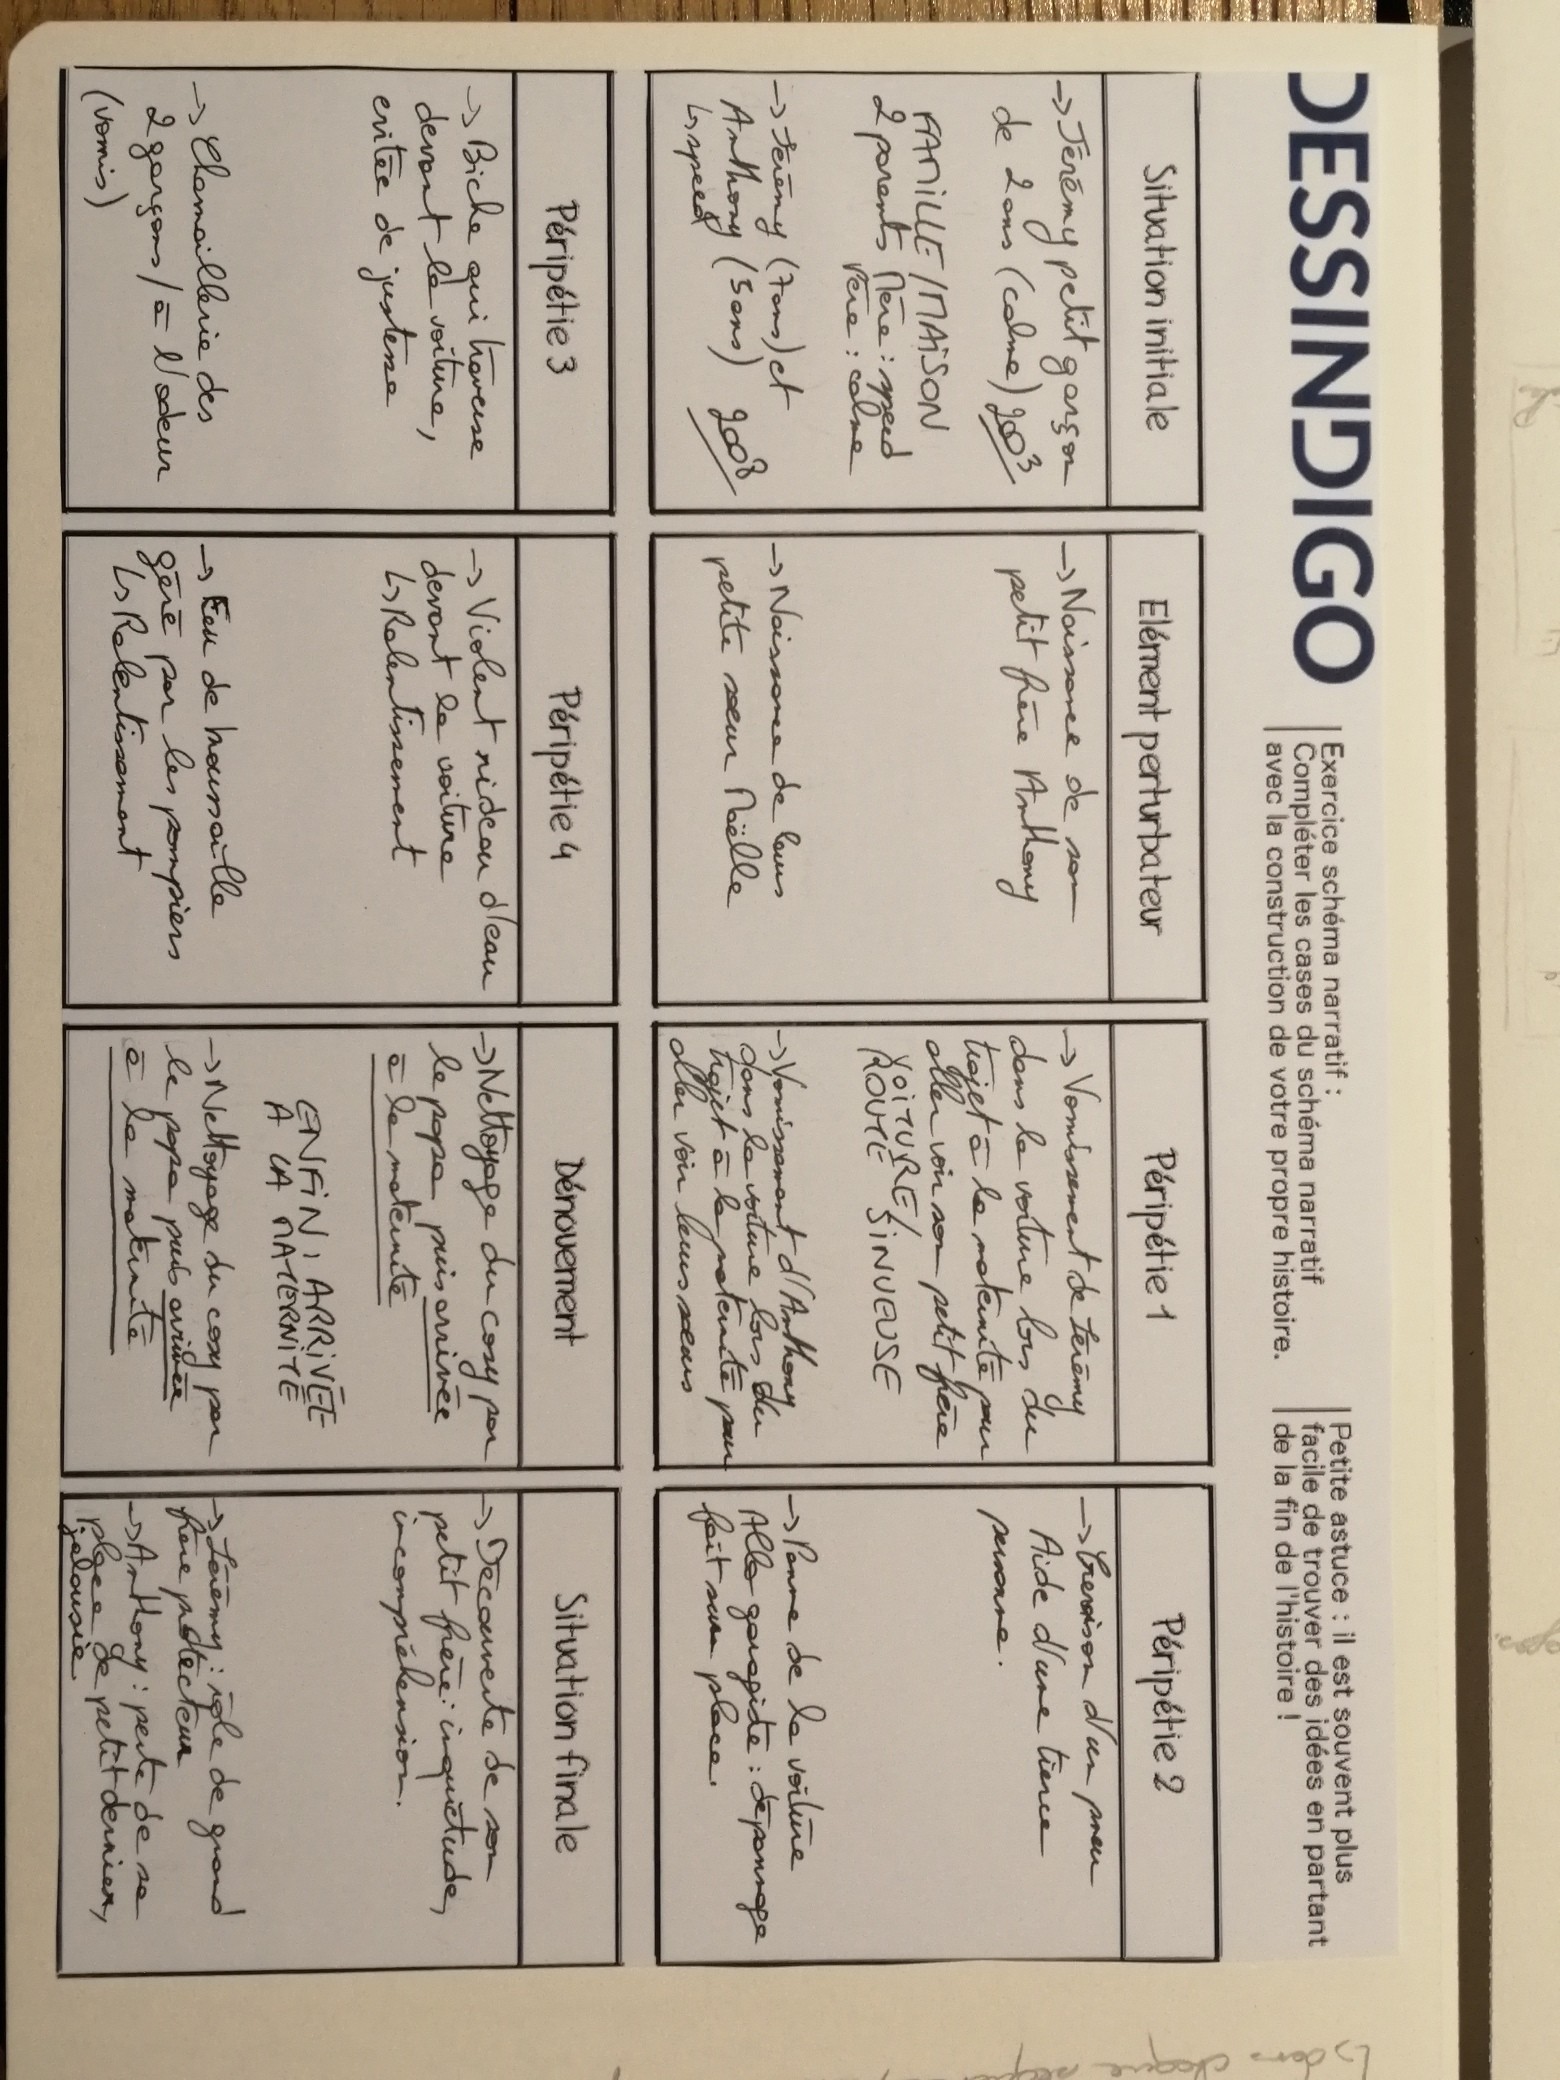 DESSINDIGO
Exercice schéma narratif :
Compléter les cases du schéma narratif
avec la construction de votre propre histoire.
Petite astuce : il est souvent plus
facile de trouver des idées en partant
de la fin de l'histoire !
Situation initiale
→ Jérémy petit garçon
de 2 ans (calme) 2003
FAMILLE/MAISON
2 parents Mère : speed
Père : calme
→ Jérémy (7ans) et
Anthony (5ans) 2008
↳ speed
Elément perturbateur
→ Naissance de son
petit frère Anthony
→ Naissance de leurs
petite sœur Maëlle
Péripétie 1
→ Vomissement de Jérémy
dans la voiture lors du
trajet à la maternité pour
aller voir son petit frère
VOITURE/
ROUTE SINUEUSE
→ Vomissement d'Anthony
dans la voiture lors du
trajet à la maternité pour
aller voir leurs sœurs
Péripétie 2
→ Crevaison d'un pneu
Aide d'une tierce
personne.
→ Panne de la voiture
Allo garagiste : dépannage
fait sur place.
Péripétie 3
→ Biche qui traverse
devant la voiture,
evitée de justesse
→ Chamaillerie des
2 garçons / à l'odeur
(vomis)
Péripétie 4
→ Violent rideau d'eau
devant la voiture
↳ Ralentissement
→ Feu de broussaille
géré par les pompiers
↳ Ralentissement
Dénouement
→ Nettoyage du cosy par
le papa puis arrivée
à la maternité
ENFIN, ARRIVÉE
A LA MATERNITÉ
→ Nettoyage du cosy par
le papa puis arrivée
à la maternité
Situation finale
→ Découverte de son
petit frère : inquiétude,
incompréhension.
→ Jérémy : rôle de grand
frère protecteur
→ Anthony : perte de sa
place de petit dernier,
jalousie.
↳ dans chaque